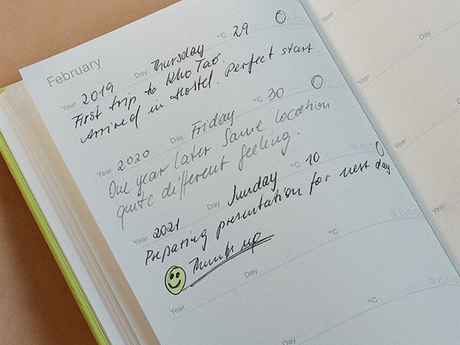 February
Year 2019 Day Thursday °C 29
First trip to Kho Tao.
Arrived in Hostel. Perfect start.
Year 2020 Day Friday °C 30
One year later same location
quite different feeling.
Year 2021 Day Sunday °C 10
Preparing presentation for next day
Thumbs up
Year Day °C
Year Day °C